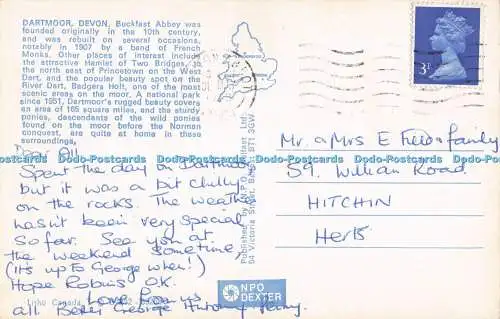 DARTMOOR, DEVON, Buckfast Abbey was
founded originally in the 10th century,
and was rebuilt on several occasions,
notably in 1907 by a band of French
Monks. Other places of interest include
the attractive Hamlet of Two Bridges, to
the north east of Princetown on the West
Dart, and the popular beauty spot on the
River Dart, Badgers Holt, one of the most
scenic areas on the moor. A national park
since 1951, Dartmoor's rugged beauty covers
an area of 165 square miles, and the sturdy
ponies, descendants of the wild ponies
found on the moor before the Norman
conquest, are quite at home in these
surroundings.
Dear All
Spent the day on Dartmoor
but it was a bit chilly
on the rocks. The weather
hasn't been very special
so far. See you at
the weekend sometime,
(it's up to George when!)
Hope Robin's O.K.
Love from us
all Betty George Antony Penny.
Published by N.P.O. Belfast Ltd.
Litho Canada
NPO
DEXTER
3P
Mr. & Mrs E Field & family
59, William Road
HITCHIN
Herts
Dodo-Postcards Dodo-Postcards Dodo-Postcards